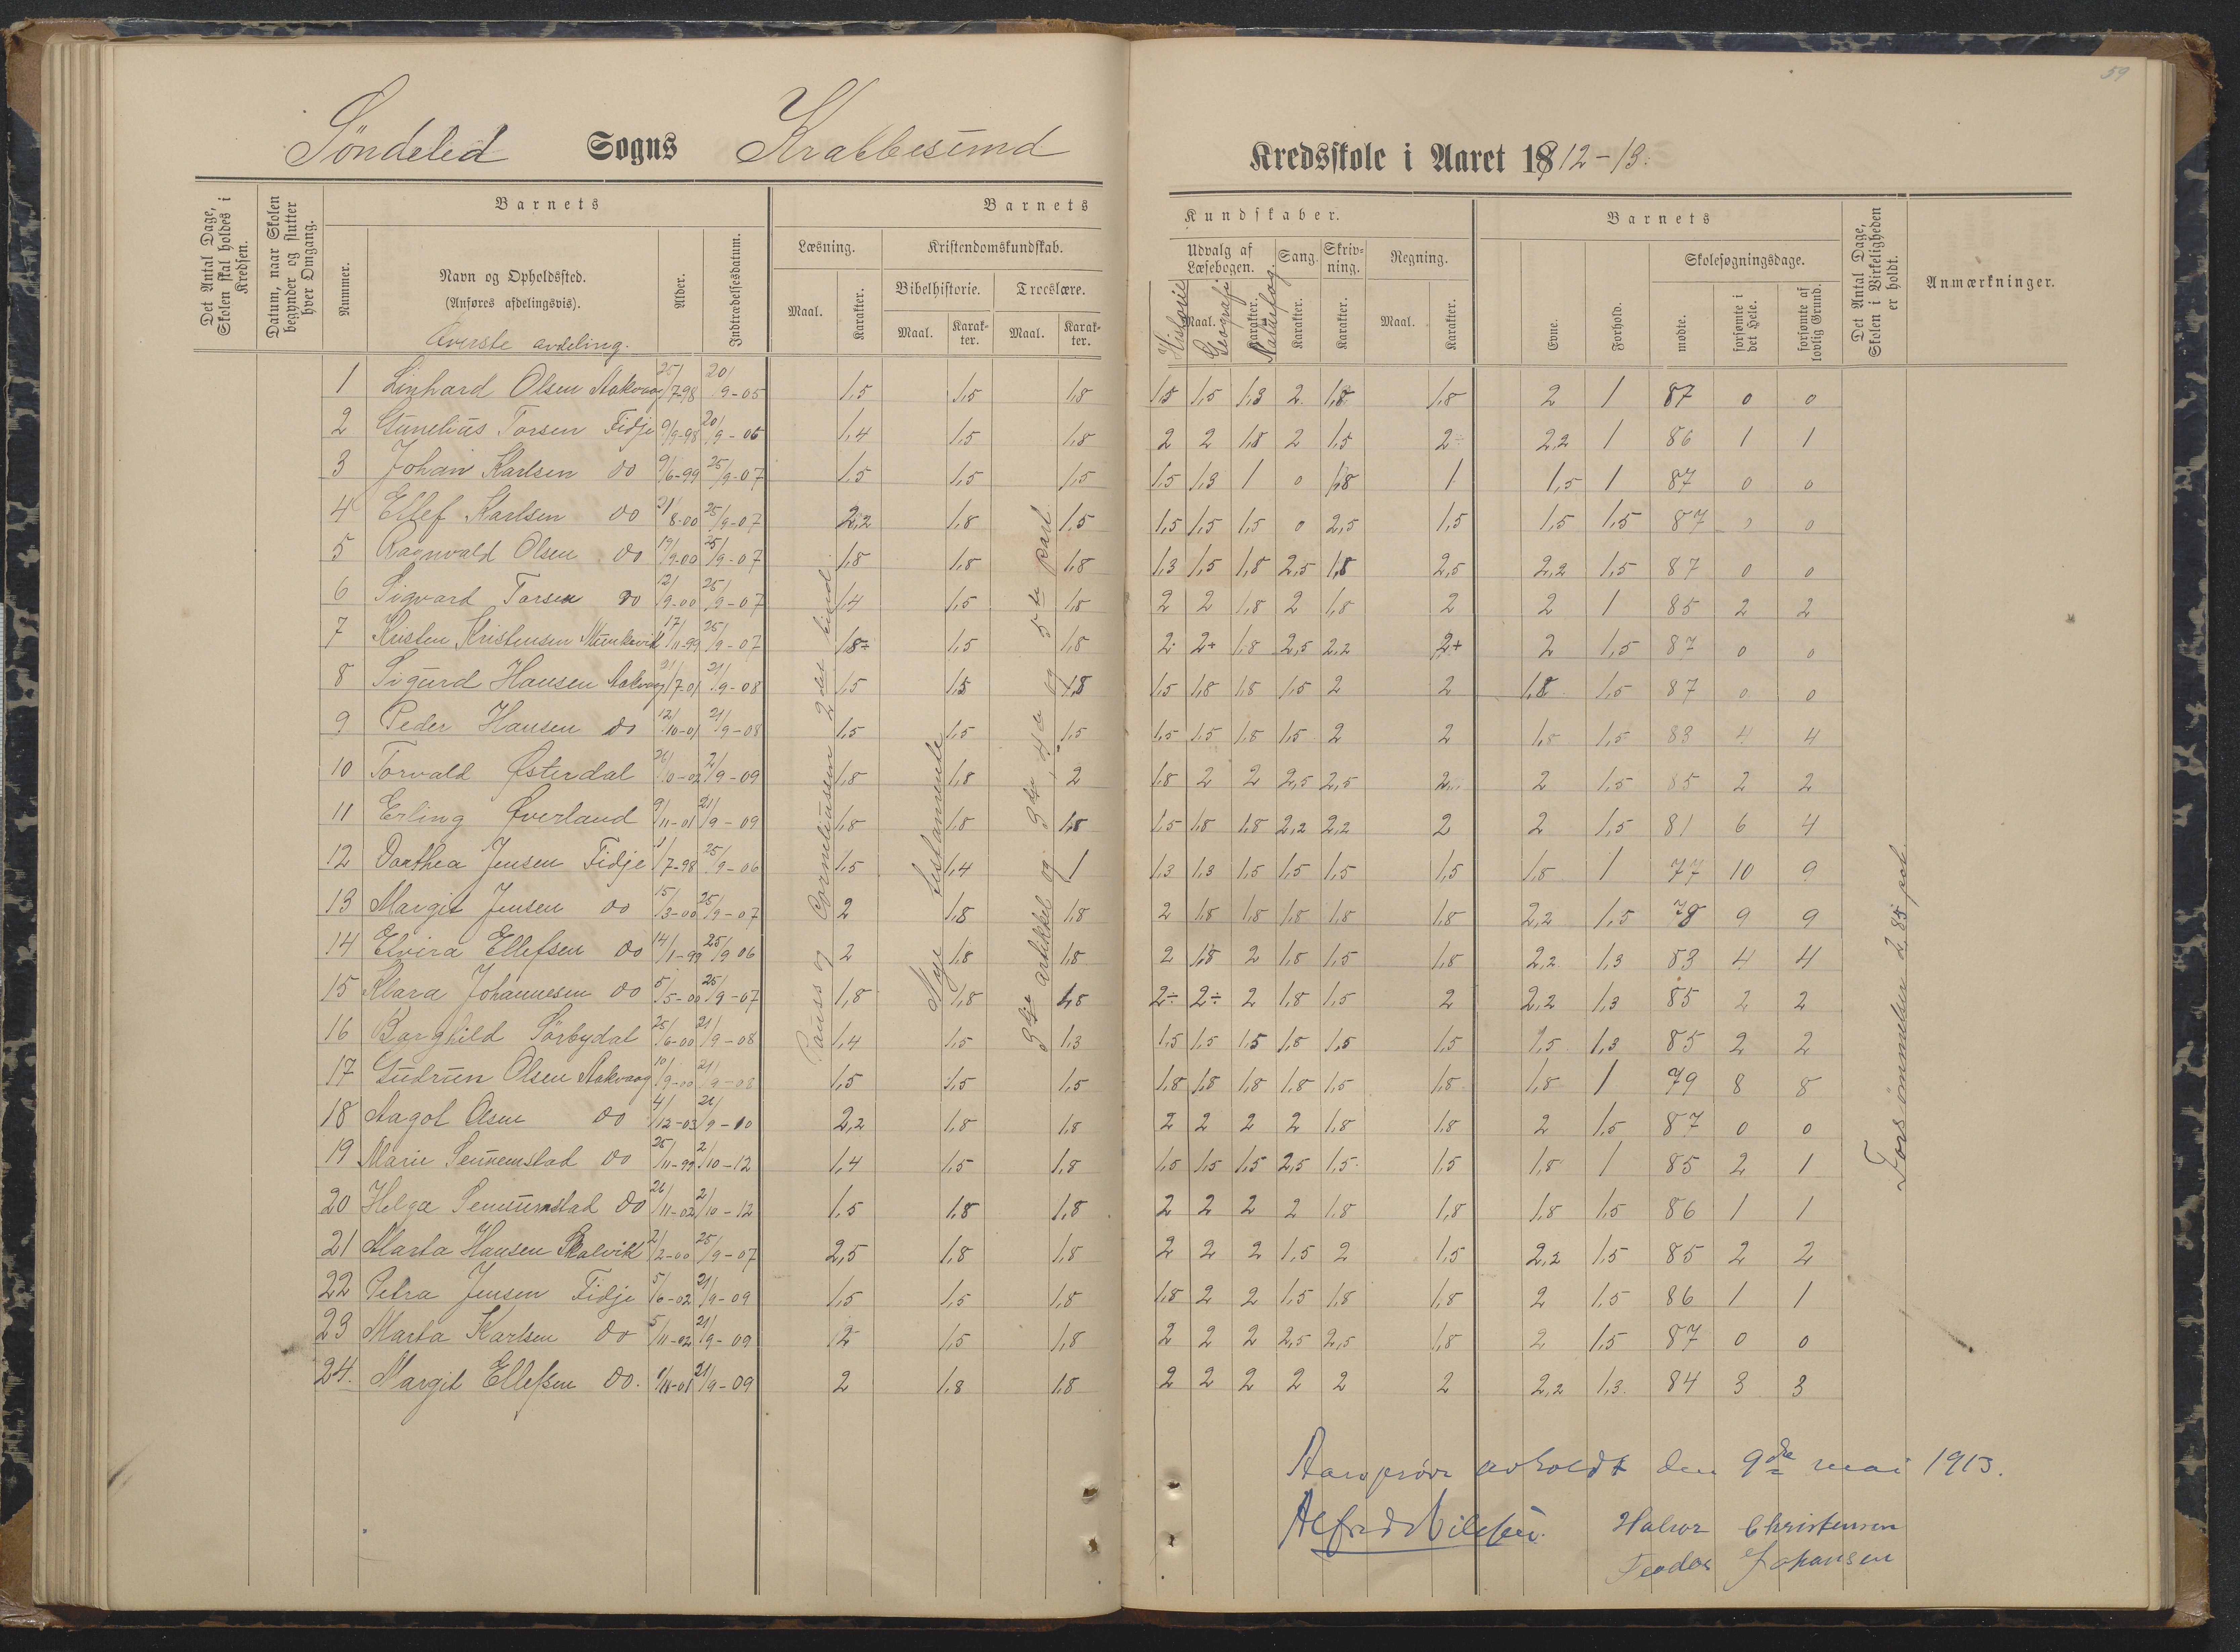 59
Söndeled Sogns Krabbesund Kredsskole i Aaret 1912-13.
Det Antal Dage, Skolen skal holdes i Kredsen.
Datum, naar Skolen begynder og slutter hver Omgang.
Barnets
Nummer.
Navn og Opholdssted.
(Anføres afdelingsvis).
Øverste avdeling.
Alder.
Indtrædelsesdatum.
Barnets Kundskaber.
Læsning.
Maal.
Karakter.
Kristendomskundskab.
Bibelhistorie.
Maal.
Karakter.
Troeslære.
Maal.
Karakter.
Udvalg af Læsebogen.
Maal.
Karakter.
Historie
Geografi
Naturfag.
Sang.
Karakter.
Skrivning.
Karakter.
Regning.
Maal.
Karakter.
Barnets
Evne.
Forhold.
Skolesøgningsdage.
mødte.
forsømte i det Hele.
forsømte af lovlig Grund.
Det Antal Dage, Skolen i Virkeligheden er holdt.
Anmærkninger.
1 Linhard Olsen Aakvaag 25/7-98 20/9-05 1,5 1,5 1,8 1,5 1,5 1,3 2 1,8 1,8 2 1 87 0 0
2 Gunelius Torsen Fidje 9/9-98 20/9-06 1,4 1,5 1,8 2 2 1,8 2 1,5 2÷ 2,2 1 86 1 1
3 Johan Karlsen do 9/6-99 25/9-07 1,5 1,5 1,5 1,5 1,3 1 0 1,8 1 1,5 1 87 0 0
4 Ellef Karlsen do 21/8-00 25/9-07 2,2 1,8 1,5 1,5 1,5 1,5 0 2,5 1,5 1,5 1,5 87 0 0
5 Ragnvald Olsen do 19/9-00 25/9-07 1,8 1,8 1,8 1,3 1,5 1,8 2,5 1,8 2,5 2,2 1,5 87 0 0
6 Sigvard Torsen do 12/9-00 25/9-07 1,4 1,5 1,8 2 2 1,8 2 1,8 2 2 1 85 2 2
7 Kristen Kristensen Munkevik 17/11-99 25/9-07 1,8÷ 1,5 1,8 2 2+ 1,8 2,5 2,2 2+ 2 1,5 87 0 0
8 Sigurd Hansen Aakvaag 21/7-01 21/9-08 1,5 1,5 1,8 1,5 1,8 1,8 1,5 2 2 1,8 1,5 87 0 0
9 Peder Hansen do 12/10-01 21/9-08 1,5 1,5 1,5 1,5 1,5 1,8 1,5 2 2 1,8 1,5 83 4 4
10 Torvald Østerdal 26/10-02 2/9-09 1,8 1,8 2 1,8 2 2 2,5 2,5 2 2 1,5 85 2 2
11 Erling Øverland 9/11-01 21/9-09 1,8 1,8 1,8 1,5 1,8 1,8 2,2 2,2 2 2 1,5 81 6 4
12 Dorthea Jensen Fidje 1/7-98 25/9-06 1,5 1,4 1 1,3 1,3 1,5 1,5 1,5 1,5 1,8 1 77 10 9
13 Margit Jensen do 15/3-00 25/9-07 2 1,8 1,8 2 1,8 1,8 1,8 1,8 1,8 2,2 1,5 78 9 9
14 Elvira Ellefsen do 14/1-99 25/9 06 2 1,8 1,8 2 1,8 2 1,8 1,5 1,8 2,2 1,3 83 4 4
15 Klara Johannesen do 5/5-00 25/9-07 1,8 1,8 1,8 2÷ 2÷ 2 1,8 1,5 2 2,2 1,3 85 2 2
16 Borghild Sörbydal 25/6-00 21/9-08 1,4 1,5 1,3 1,5 1,5 1,5 1,8 1,5 1,5 1,5 1,3 85 2 2
17 Gudrun Olsen Aakvaag 10/9-00 21/9-08 1,5 1,5 1,5 1,8 1,8 1,8 1,8 1,5 1,8 1,8 1 79 8 8
18 Aagot Olsen do 4/12-03 21/9-10 2,2 1,8 1,8 2 2 2 2 1,8 1,8 2 1,5 87 0 0
19 Marie Sennumstad do 25/11-99 2/10-12 1,4 1,5 1,8 1,5 1,5 1,5 2,5 1,5 1,5 1,8 1 85 2 1
20 Helga Sennumstad do 26/11-02 2/10-12 1,5 1,8 1,8 2 2 2 2 1,8 1,8 1,8 1,5 86 1 1
21 Marta Hansen Skalvik 2/2-00 25/9-07 2,5 1,8 1,8 2 2 2 1,5 2 1,5 2,2 1,5 85 2 2
22 Petra Jensen Fidje 5/6-02 21/9-09 1,5 1,5 1,8 1,8 2 2 1,5 1,8 1,8 2 1,5 86 1 1
23 Marta Karlsen do 5/11-02 21/9-09 2 1,5 1,8 2 2 2 2,5 2,5 1,8 2 1,5 87 0 0
24. Margit Ellefsen do. 1/11-01 21/9-09 2 1,8 1,8 2 2 2 2 2 2 2,2 1,3 84 3 3
Pauss og Corneliussen 2det bind.
Nye testamente
3dje artikkel og 3dje, 4de og 5te part.
Forsömmelsen 2,85 pct.
Aarsprøve avholdt den 9de mai 1913.
Alfred Nilsen. Halvor Christensen
Feodor Johansen